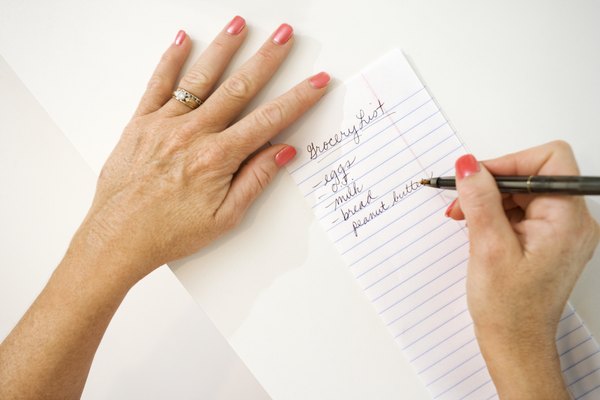 Grocery List
- eggs
- milk
- bread
peanut butter